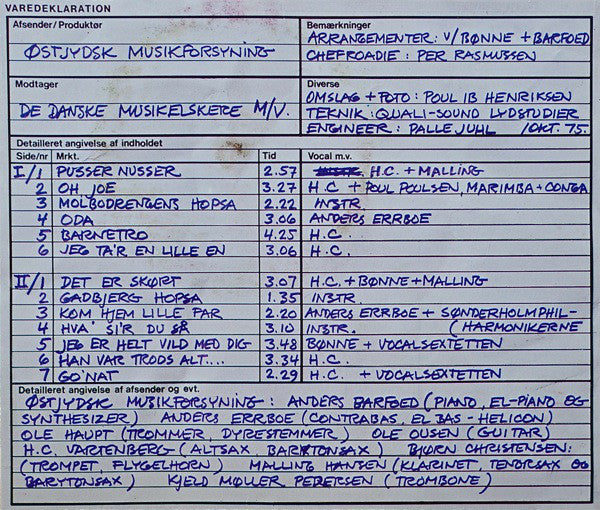 VAREDEKLARATION
Afsender/Produktør
Bemærkninger
ØSTJYDSK MUSIKFORSYNING
ARRANGEMENTER: V/BØNNE + BARFOED
CHEFROADIE: PER RASMUSSEN
Modtager
Diverse
DE DANSKE MUSIKELSKERE M/V.
OMSLAG + FOTO: POUL IB HENRIKSEN
TEKNIK: QUALI-SOUND LYDSTUDIER
ENGINEER: PALLE JUHL /OKT. 75.
Detailleret angivelse af indholdet
Side/nr Mrkt. Tid Vocal m.v.
I/1 PUSSER NUSSER 2.57 H.C. + MALLING
2 OH JOE 3.27 H.C + POUL POULSEN, MARIMBA + CONGA
3 MOLBODRENGENS HOPSA 2.22 INSTR.
4 ODA 3.06 ANDERS ERRBOE
5 BARNETRO 4.25 H.C.
6 JEG TA'R EN LILLE EN 3.06 H.C.
II/1 DET ER SKØRT 3.07 H.C. + BØNNE + MALLING
2 GADBJERG HOPSA 1.35 INSTR.
3 KOM HJEM LILLE FAR 2.20 ANDERS ERRBOE + SØNDERHOLMPHIL-
4 HVA' SI'R DU SÅ 3.10 INSTR. (HARMONIKERNE
5 JEG ER HELT VILD MED DIG 3.48 BØNNE + VOCALSEXTETTEN
6 HAN VAR TRODS ALT.... 3.34 H.C.
7 GO'NAT 2.29 H.C. + VOCALSEXTETTEN
Detailleret angivelse af afsender og evt.
ØSTJYDSK MUSIKFORSYNING: ANDERS BARFOED (PIANO, EL-PIANO OG
SYNTHESIZER) ANDERS ERRBOE (CONTRABAS, EL BAS - HELICON)
OLE HAUPT (TROMMER, DYRESTEMMER) OLE OUSEN (GUITAR)
H.C. VARTENBERG (ALTSAX, BARYTONSAX) BJØRN CHRISTENSEN:
(TROMPET, FLYGELHORN) MALLING HANSEN (KLARINET, TENORSAX OG
BARYTONSAX) KJELD MØLLER PEDERSEN (TROMBONE)